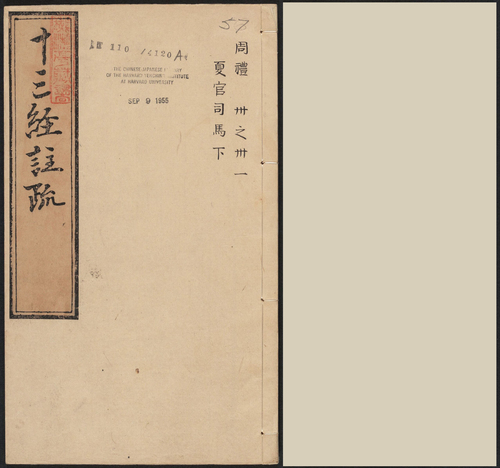 57
周禮 卅之卅一
夏官司馬下
THE CHINESE-JAPANESE LIBRARY
OF THE HARVARD-YENCHING INSTITUTE
AT HARVARD UNIVERSITY
SEP 9 1955
十三經註疏